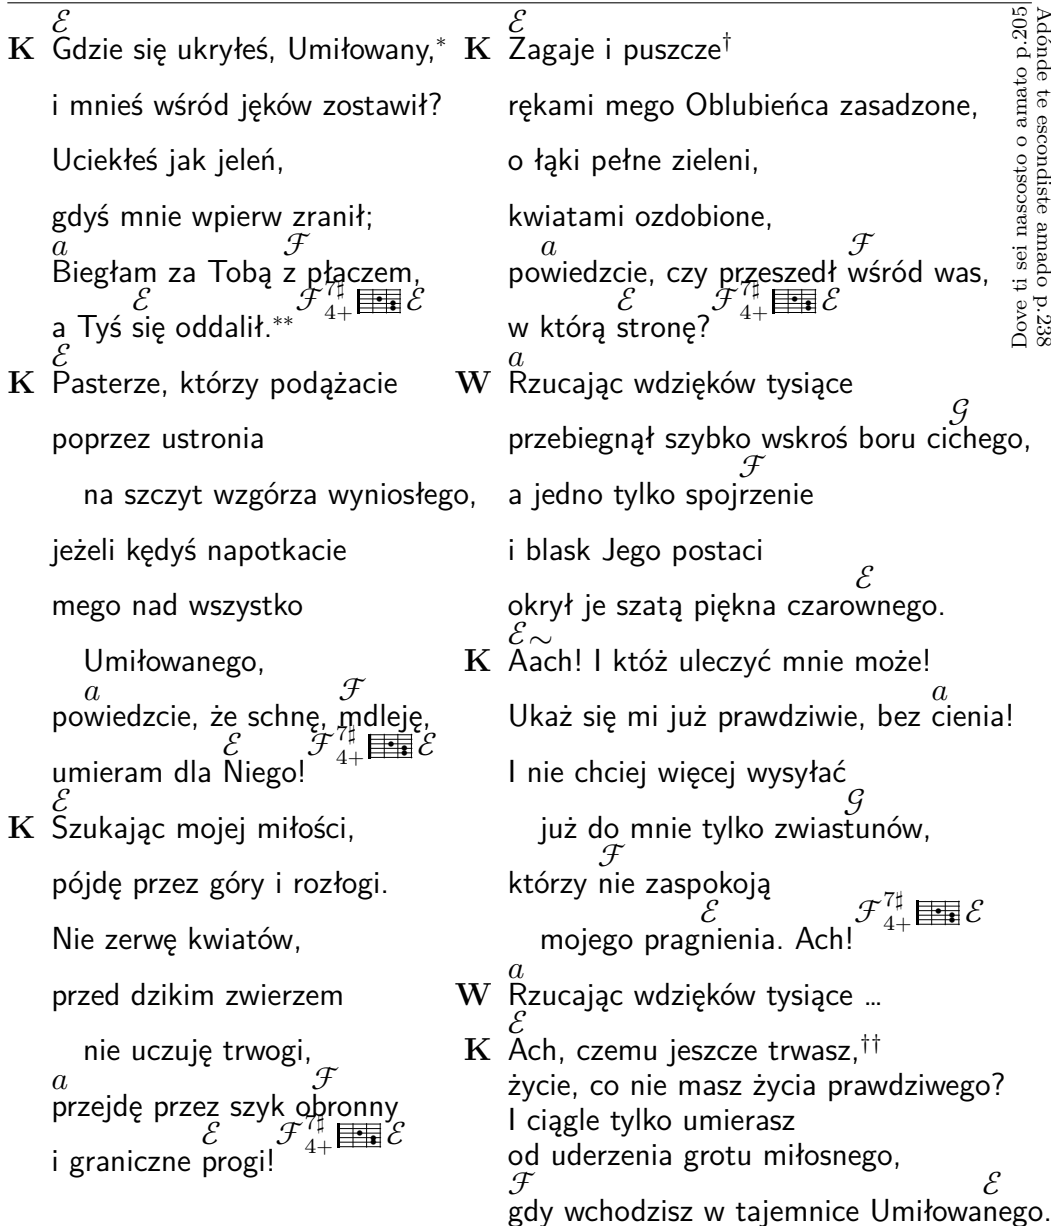 ℰ
K Gdzie się ukryłeś, Umiłowany,*
i mnieś wśród jęków zostawił?
Uciekłeś jak jeleń,
gdyś mnie wpierw zranił;
a ℱ
Biegłam za Tobą z płaczem,
ℰ ℱ 7♯ 4+ ℰ
a Tyś się oddalił.**
ℰ
K Pasterze, którzy podążacie
poprzez ustronia
na szczyt wzgórza wyniosłego,
jeżeli kędyś napotkacie
mego nad wszystko
Umiłowanego,
a ℱ
powiedzcie, że schnę, mdleję,
ℰ ℱ 7♯ 4+ ℰ
umieram dla Niego!
ℰ
K Szukając mojej miłości,
pójdę przez góry i rozłogi.
Nie zerwę kwiatów,
przed dzikim zwierzem
nie uczuję trwogi,
a ℱ
przejdę przez szyk obronny
ℰ ℱ 7♯ 4+ ℰ
i graniczne progi!
ℰ
K Zagaje i puszcze†
rękami mego Oblubieńca zasadzone,
o łąki pełne zieleni,
kwiatami ozdobione,
a ℱ
powiedzcie, czy przeszedł wśród was,
ℰ ℱ 7♯ 4+ ℰ
w którą stronę?
a
W Rzucając wdzięków tysiące
𝒢
przebiegnął szybko wskroś boru cichego,
ℱ
a jedno tylko spojrzenie
i blask Jego postaci
ℰ
okrył je szatą piękna czarownego.
ℰ∼
K Aach! I któż uleczyć mnie może!
a
Ukaż się mi już prawdziwie, bez cienia!
I nie chciej więcej wysyłać
𝒢
już do mnie tylko zwiastunów,
ℱ
którzy nie zaspokoją
ℰ ℱ 7♯ 4+ ℰ
mojego pragnienia. Ach!
a
W Rzucając wdzięków tysiące …
ℰ
K Ach, czemu jeszcze trwasz,††
życie, co nie masz życia prawdziwego?
I ciągle tylko umierasz
od uderzenia grotu miłosnego,
ℱ ℰ
gdy wchodzisz w tajemnice Umiłowanego.
Adónde te escondiste amado p.238
Dove ti sei nascosto o amato p.205